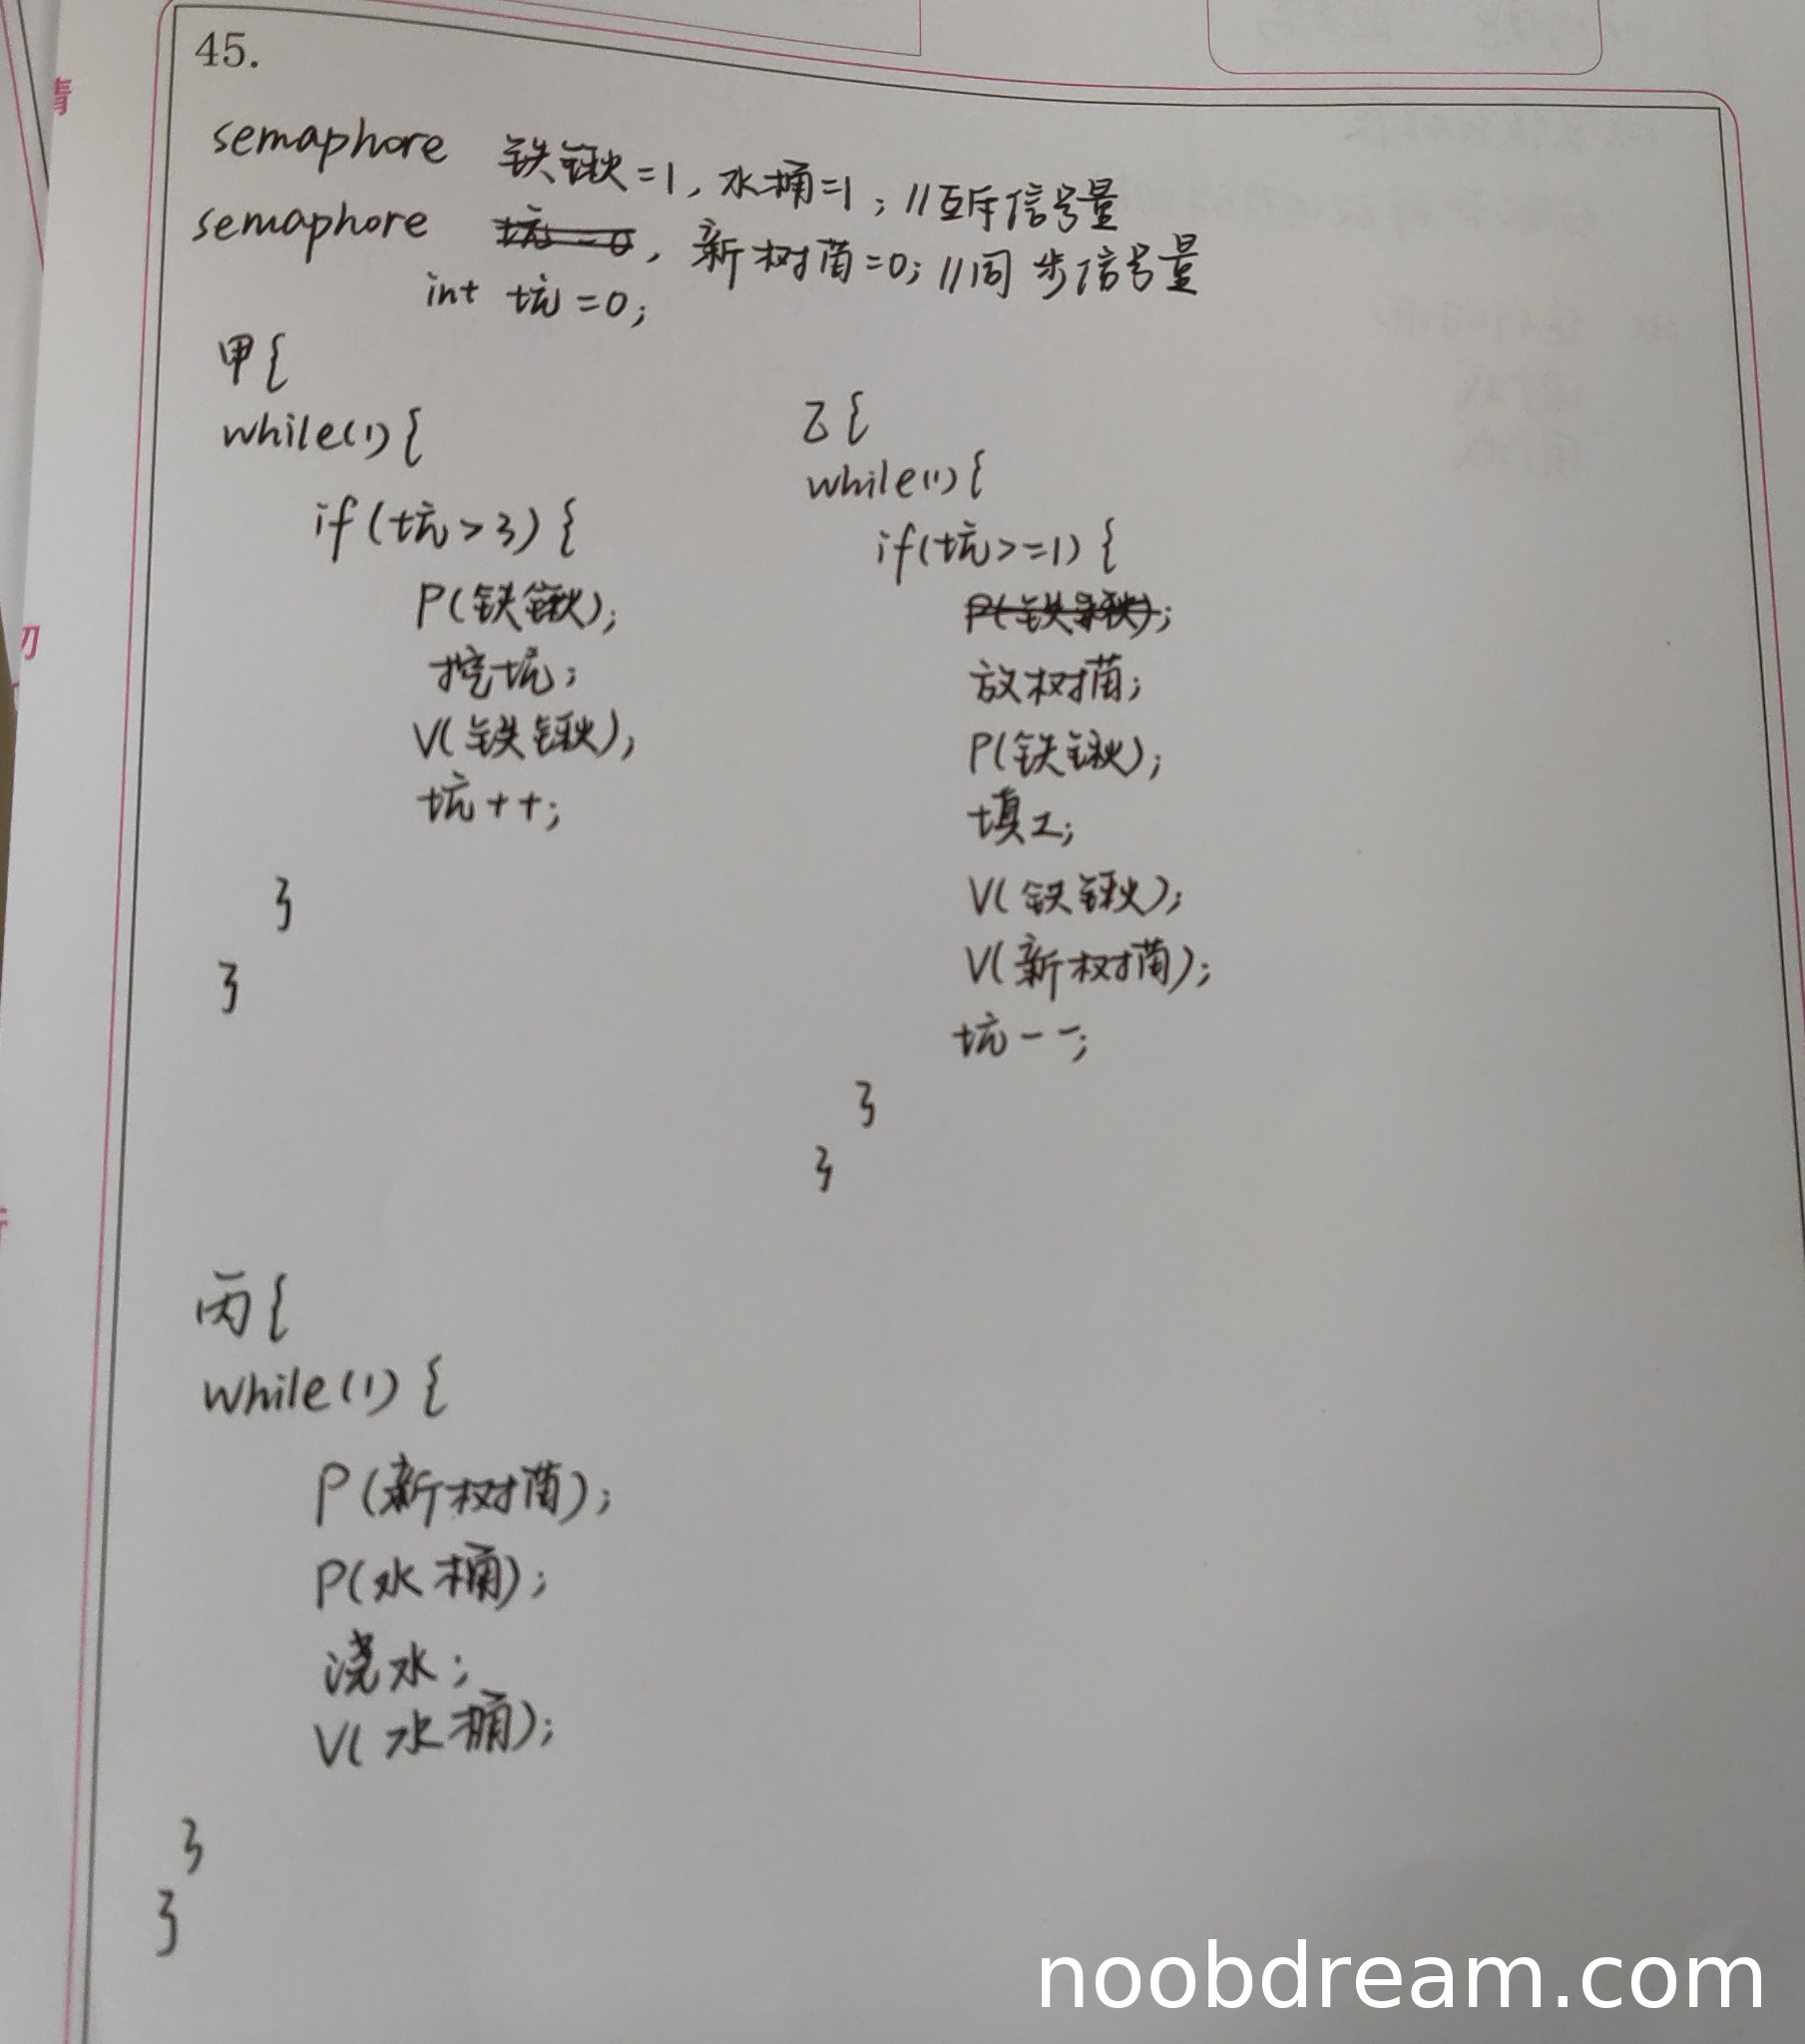 45.
semaphore 铁锹=1, 水桶=1; //互斥信号量
semaphore 坑=0, 新树苗=0; //同步信号量
int 坑=0;
甲{
while(1){
if(坑>3){
P(铁锹);
挖坑;
V(铁锹);
坑++;
}
}
乙{
while(1){
if(坑>=1){
P(铁锹);
放树苗;
P(铁锹);
填土;
V(铁锹);
V(新树苗);
坑--;
}
}
丙{
while(1){
P(新树苗);
P(水桶);
浇水;
V(水桶);
}
}
noobdream.com